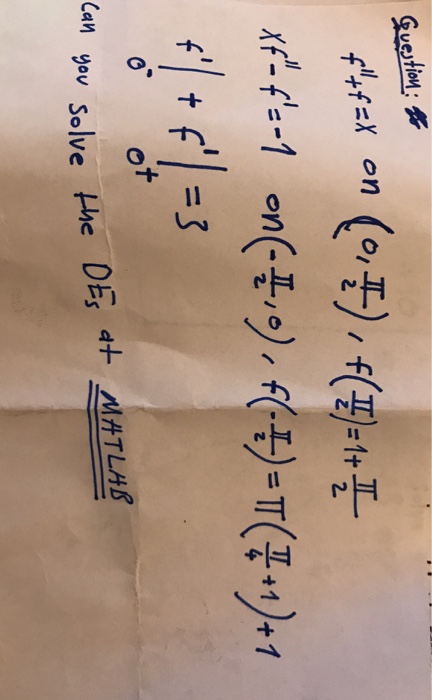 Question:
f''+f=x on (0, π/2), f(π/2)=1+π/2
xf''-f'=-1 on(-π/2, 0), f(-π/2)=π(π/4+1)+1
f'|0⁻ + f'|0⁺ =3
Can you solve the DEs at MATLAB